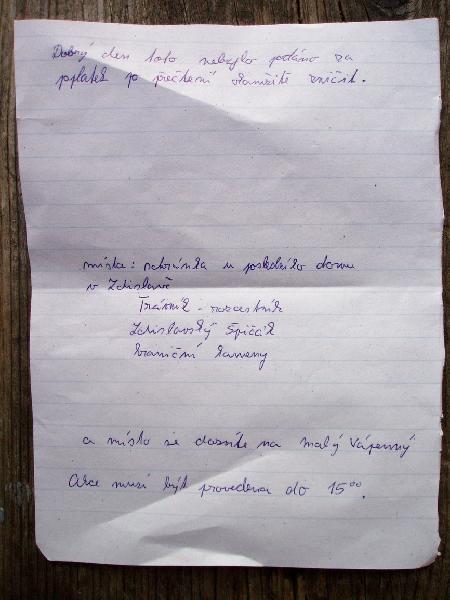 Dobrý den toto nebylo podáno za
pplatek po přečtení okamžitě zničit.
místa: u posledního domu
v Zdislavě
Trávník - rozcestník
Zdislavský Špičák
hraniční kameny
a místo se dozvíte na malý Vápenný
Akce musí být provedena do 15ºº.